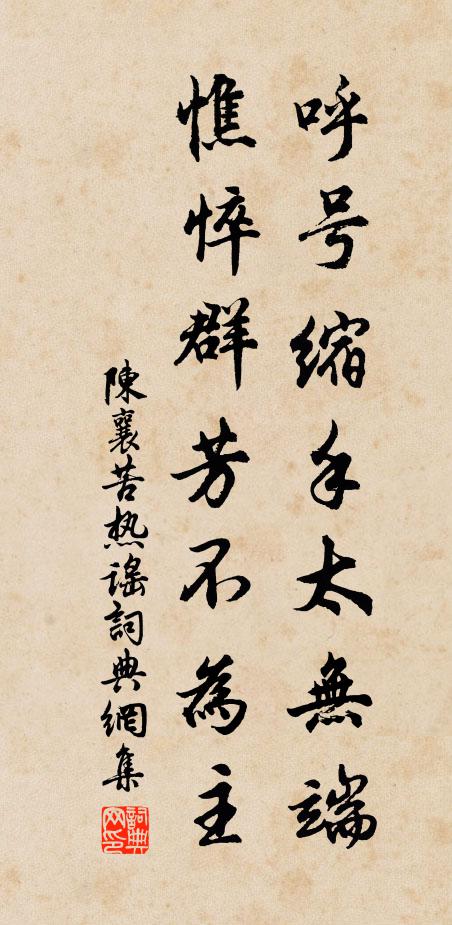 呼号縮手太無端
憔悴群芳不為主
陳襄苦热謡詞典網集
詞典网印